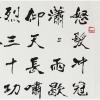 怒髮冲冠
瀟〻雨歇
仰天長嘯
烈三十功